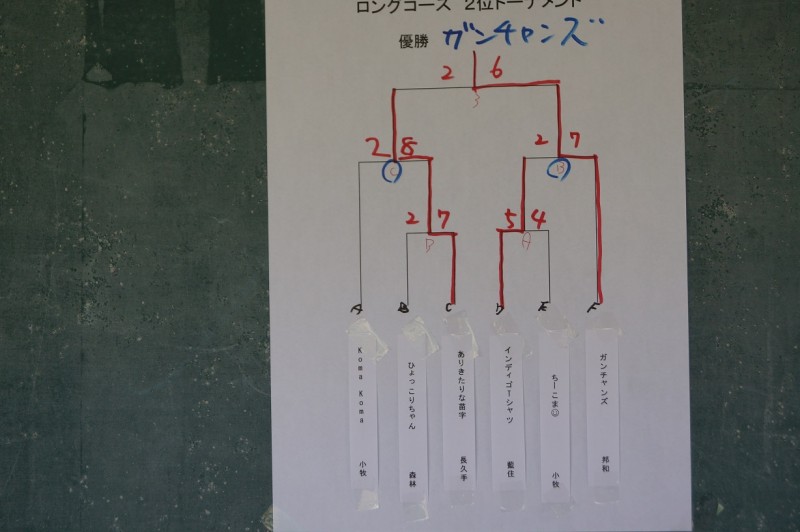 ロングコース 2位トーナメント
優勝 ガンチャンズ
2 6
2 8 2 7
C B
2 7 5 4
B A
A B C D E F
Koma Koma 小牧
ひょっこりちゃん 森林
ありきたりな苗字 長久手
インディゴTシャツ 藍住
ちーこま☺ 小牧
ガンチャンズ 邦和